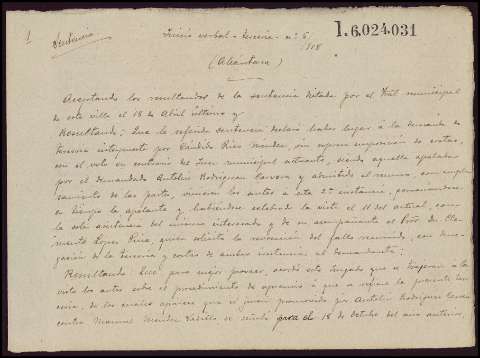 1
Sentencia
Juicio verbal - tercería - nº 5
/918
1.6.024.031
(Alcántara)
Aceptando los resultandos de la sentencia dictada por el Tral municipal
de esta villa el 18 de Abril último y
Resultando: Que la referida sentencia declaró haber lugar á la demanda de
tercería interpuesta por Cándido Rico Méndez, sin expresa imposición de costas,
con el voto en contrario del Juez municipal actuante, siendo aquella apelada
por el demandado Antolín Rodríguez Carvera y admitido el recurso, con empla-
zamiento de las partes, vinieron los autos a esta 2ª instancia, personándose
en tiempo la apelante y habiéndose celebrado la vista el 11 del actual, con
la sola asistencia del mismo interesado y de su acompañante el Prór Dn Cle-
mente López Piris, quien solicitó la revocación del fallo recurrido, con dene-
gación de la tercería y costas de ambas instancias al demandante;
Resultando: Que para mejor proveer, acordó este Juzgado que se trajeran a la
vista los autos sobre el procedimiento de apremio á que se refiere la presente terce-
ría, de los cuales aparece que el juicio promovido por Antolín Rodríguez
contra Manuel Méndez se señaló para el 18 de Octubre del año anterior,